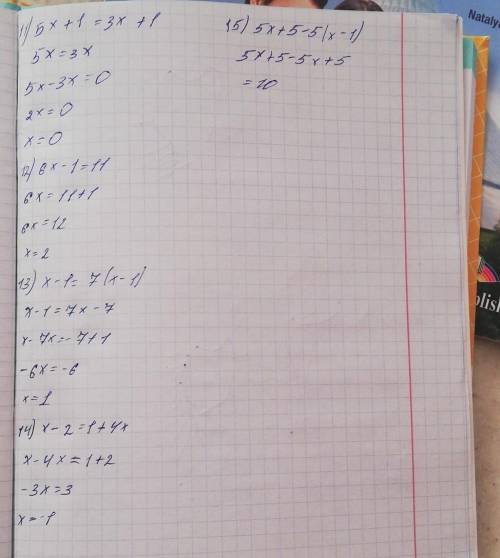 11) 5x+1=3x+1
5x=3x
5x-3x=0
2x=0
x=0
12) 6x-1=11
6x=11+1
6x=12
x=2
13) x-1=7(x-1)
x-1=7x-7
x-7x=-7+1
-6x=-6
x=1
14) x-2=1+4x
x-4x=1+2
-3x=3
x=-1
15) 5x+5-5(x-1)
5x+5-5x+5
=10
Nataly